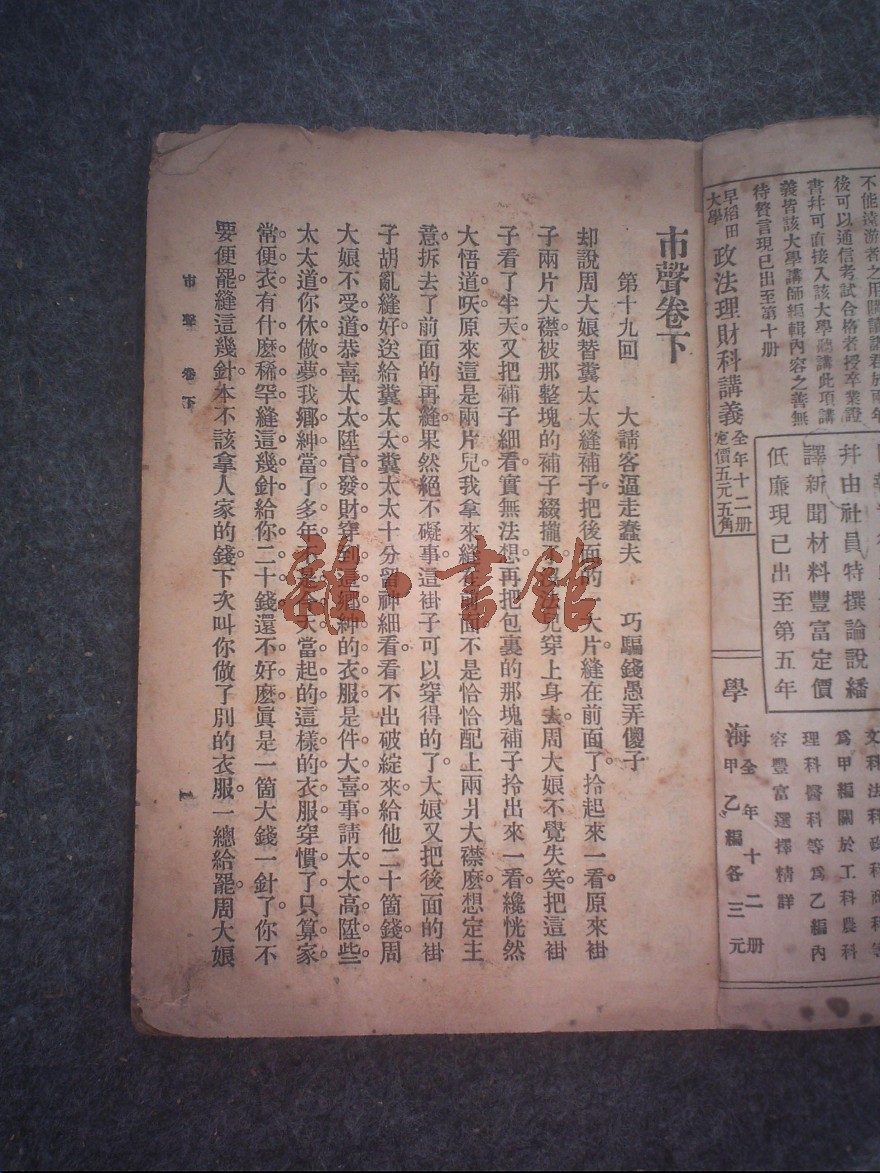 不能遠游者之用閱讀諸君於兩年
後可以通信考試合格者授卒業證
書幷可直接入該大學聽講此項講
義皆該大學講師編輯內容之善無
待贅言現已出至第十册
早稻田大學 政法理財科講義 全年十二册 定價五元五角
幷由社員特撰論說繙
譯新聞材料豐富定價
低廉現已出至第五年
文科法科政科商科等
爲甲編關於工科農科
理科醫科等爲乙編內
容豐富選擇精詳
學海 全年十二册 甲乙編各三元
市聲卷下
第十九回 大請客逼走蠢夫 巧騙錢愚弄傻子
却說周大娘替糞太太縫補子把後面的一大片縫在前面了拾起來一看原來褂
子兩片大襟被那整塊的補子綴攏不法兒穿上身去周大娘不覺失笑把這褂
子看了半天又把補子細看實無法想再把包裏的那塊補子拎出來一看纔恍然
大悟道咲原來這是兩片兒我拿來縫在前面不是恰恰配上兩爿大襟麽想定主
意拆去了前面的再縫果然絕不礙事這褂子可以穿得的了大娘又把後面的褂
子胡亂縫好送給糞太太糞太太十分留神細看看不出破綻來給他二十箇錢周
大娘不受道恭喜太太陞官發財穿到這鄉紳的衣服是件大喜事請太太高陞些
太太道你休做夢我鄉紳當了多年不是今天當起的這樣的衣服穿慣了只算家
常便衣有什麽稀罕縫這幾針給你二十錢還不好麽眞是一箇大錢一針了你不
要便罷縫這幾針本不該拿人家的錢下次叫你做了別的衣服一總給罷周大娘
市聲 卷下 一
雜·書館